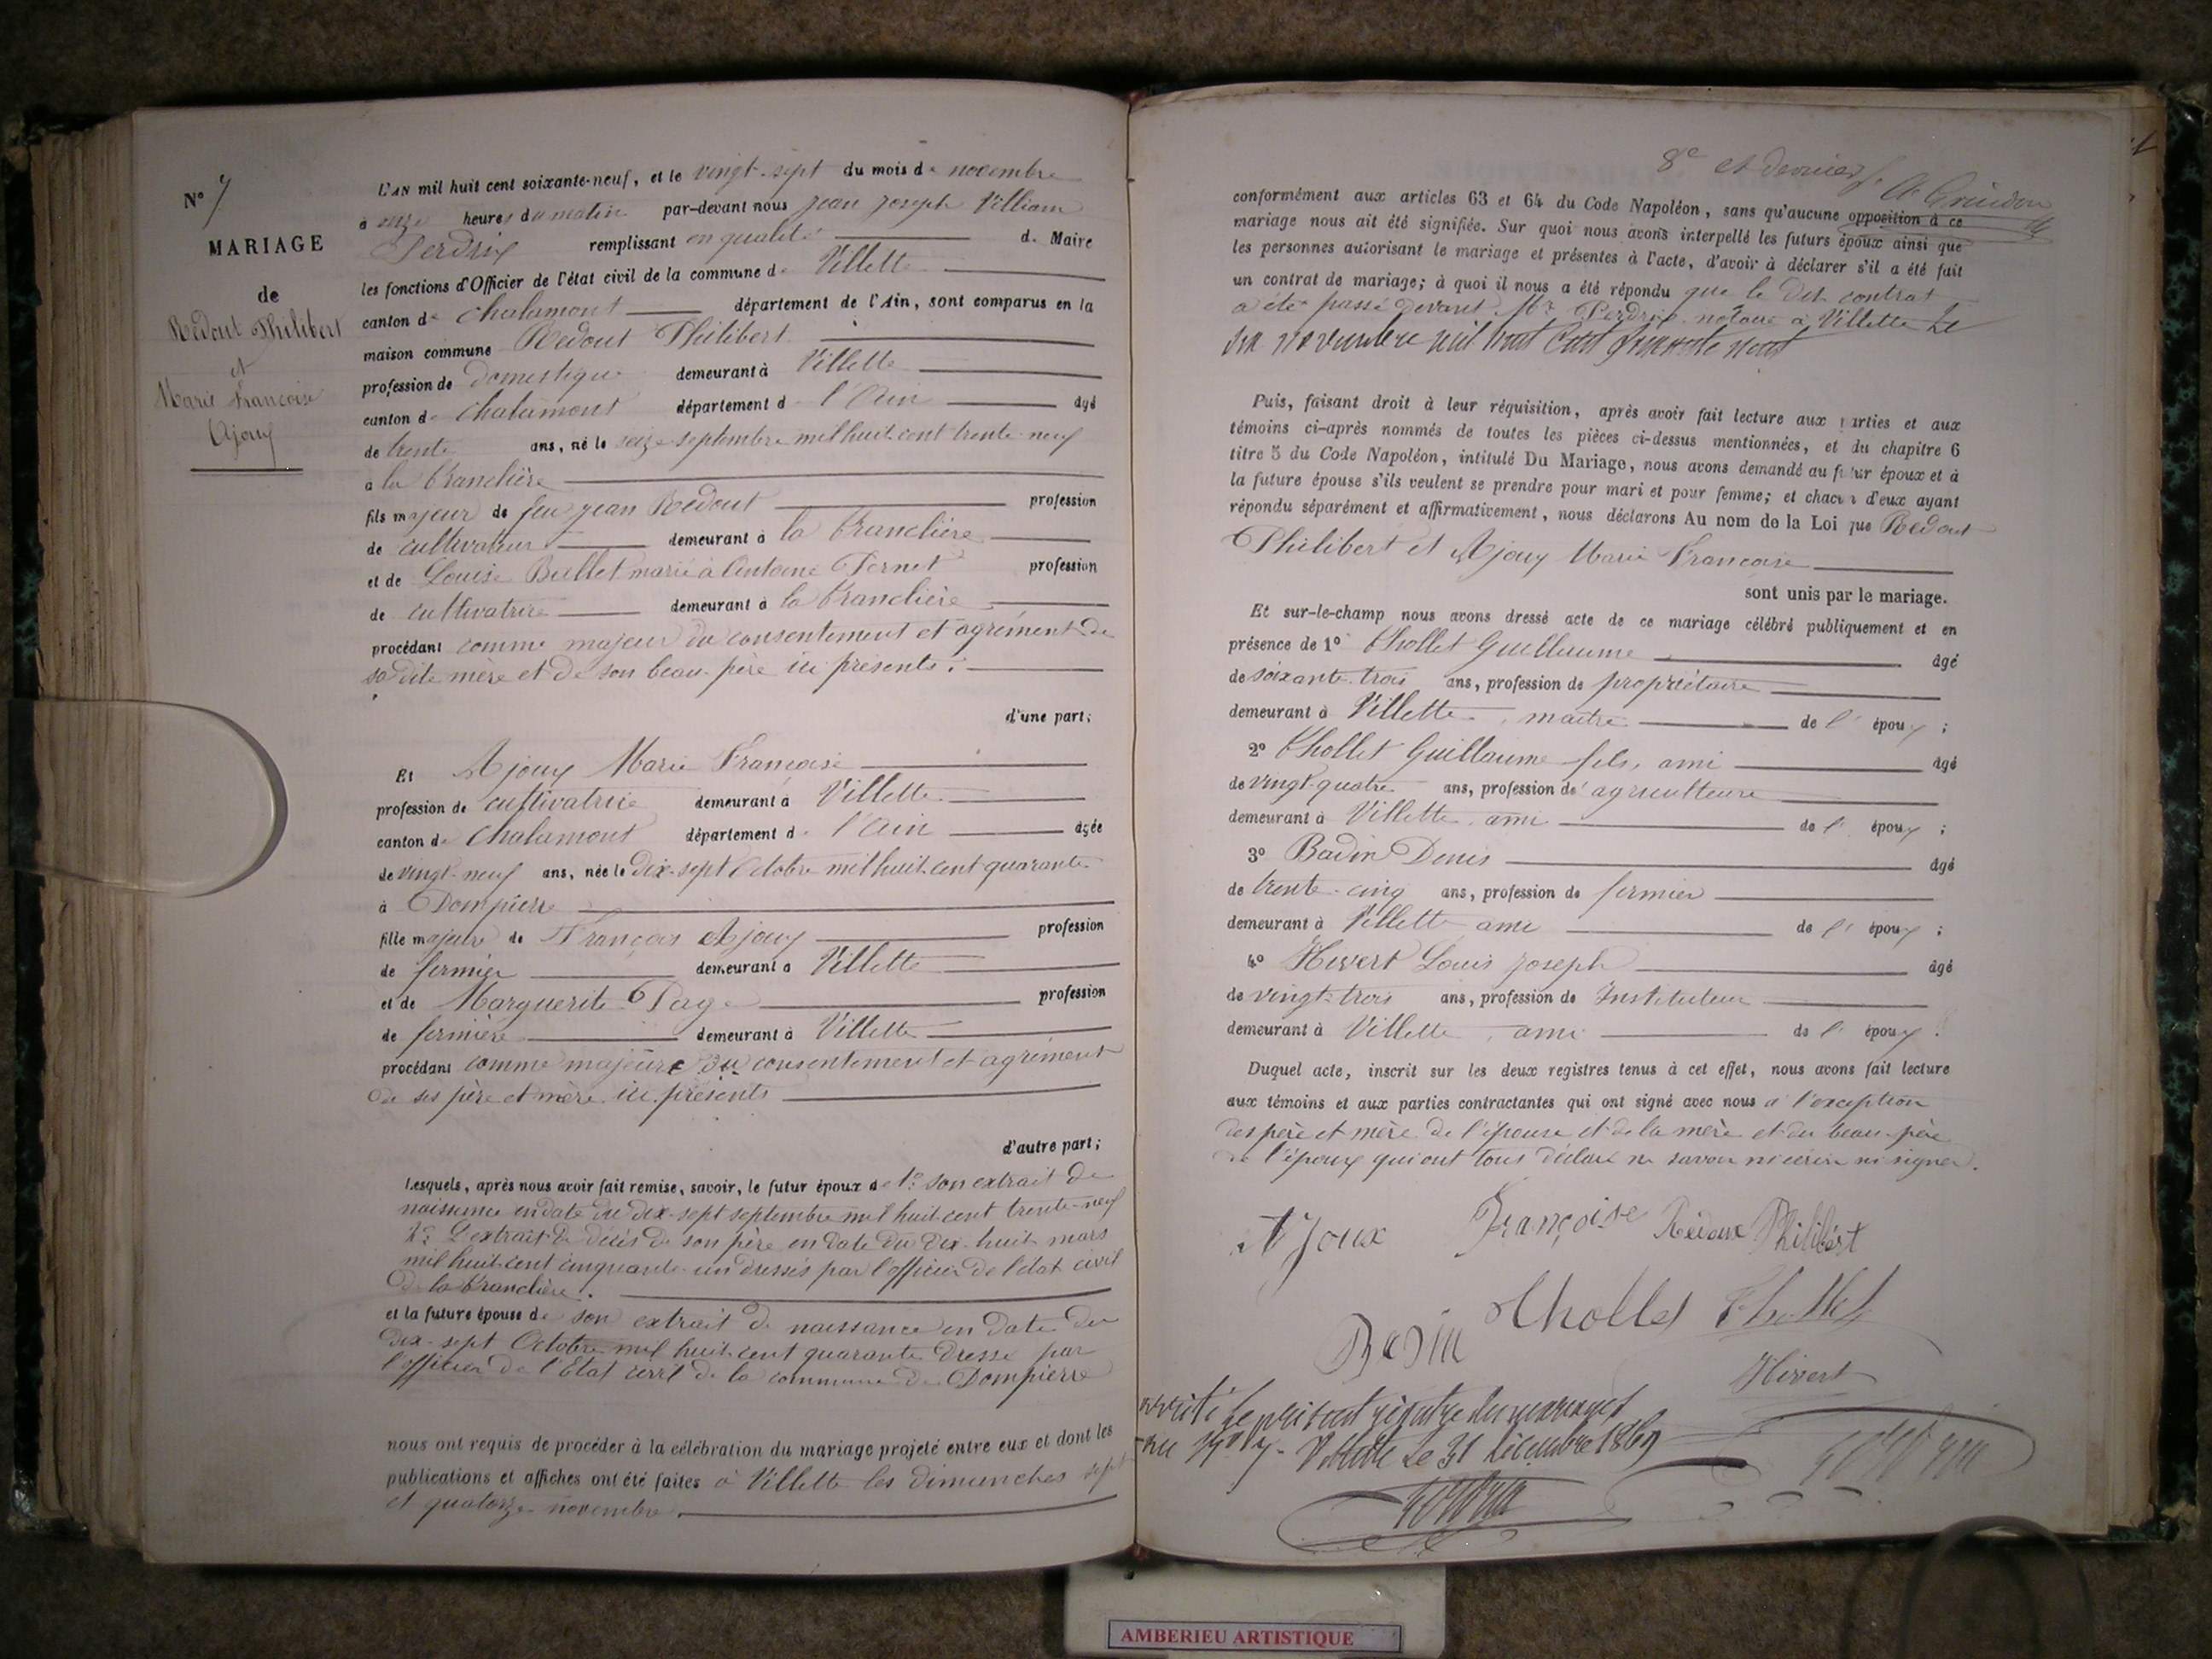 N° 7
MARIAGE
de
Redout Philibert
et
Marie Francoise
Ajoux
L'AN mil huit cent soixante-neuf, et le vingt-sept du mois de novembre
à onze heures du matin par-devant nous Jean Joseph Villiam
Perdrix remplissant en qualité de Maire
les fonctions d'Officier de l'état civil de la commune de Villette
canton de Chalamont département de l'Ain, sont comparus en la
maison commune Redout Philibert
profession de domestique demeurant à Villette
canton de Chalamont département de l'Ain âgé
de trente ans, né le seize septembre mil huit cent trente-neuf
à la Tranclière
fils majeur de feu Jean Redout profession
de cultivateur demeurant à la Tranclière
et de Louise Bullet marié à Antoine Fornet profession
de cultivatrice demeurant à la Tranclière
procédant comme majeur du consentement et agrément de
sa dite mère et de son beau-père ici présents.
d'une part;
Et Ajoux Marie Francoise
profession de cultivatrice demeurant à Villette
canton de Chalamont département de l'Ain âgée
de vingt-neuf ans, née le dix-sept Octobre mil huit cent quarante
à Dompierre
fille majeure de François Ajoux profession
de fermier demeurant à Villette
et de Marguerite Page profession
de fermière demeurant à Villette
procédant comme majeure du consentement et agrément
de ses père et mère ici présents
d'autre part;
Lesquels, après nous avoir fait remise, savoir, le futur époux de 1° son extrait de
naissance en date du dix-sept septembre mil huit cent trente-neuf
2° L'extrait de décès de son père en date du dix-huit mars
mil huit cent cinquante-un dressés par l'officier de l'état civil
de la Tranclière.
et la future épouse de son extrait de naissance en date du
dix-sept Octobre mil huit cent quarante dressé par
l'officier de l'Etat civil de la commune de Dompierre
nous ont requis de procéder à la célébration du mariage projeté entre eux et dont les
publications et affiches ont été faites à Villette les dimanches sept
et quatorze novembre.
8e et dernier f.
conformément aux articles 63 et 64 du Code Napoléon, sans qu'aucune opposition à ce
mariage nous ait été signifiée. Sur quoi nous avons interpellé les futurs époux ainsi que
les personnes autorisant le mariage et présentes à l'acte, d'avoir à déclarer s'il a été fait
un contrat de mariage; à quoi il nous a été répondu que le dit contrat
a été passé devant Mr Perdrix notaire à Villette le
six novembre mil huit cent soixante neuf
Puis, faisant droit à leur réquisition, après avoir fait lecture aux parties et aux
témoins ci-après nommés de toutes les pièces ci-dessus mentionnées, et du chapitre 6
titre 5 du Code Napoléon, intitulé Du Mariage, nous avons demandé au futur époux et à
la future épouse s'ils veulent se prendre pour mari et pour femme; et chacun d'eux ayant
répondu séparément et affirmativement, nous déclarons Au nom de la Loi que Redout
Philibert et Ajoux Marie Francoise
sont unis par le mariage.
Et sur-le-champ nous avons dressé acte de ce mariage célébré publiquement et en
présence de 1° Chollet Guillaume âgé
de soixante-trois ans, profession de propriétaire
demeurant à Villette, maître de l'époux;
2° Chollet Guillaume fils, ami âgé
de vingt-quatre ans, profession d'agriculteur
demeurant à Villette, ami de l'époux;
3° Badin Denis âgé
de trente-cinq ans, profession de fermier
demeurant à Villette ami de l'époux;
4° Hivert Louis Joseph âgé
de vingt-trois ans, profession de Instituteur
demeurant à Villette, ami de l'époux.
Duquel acte, inscrit sur les deux registres tenus à cet effet, nous avons fait lecture
aux témoins et aux parties contractantes qui ont signé avec nous à l'exception
des père et mère de l'épouse et de la mère et du beau-père
de l'époux qui ont tous déclaré ne savoir ni écrire ni signer.
AJoux Françoise Redoux Philibert
Chollet Chollet
Badin
Hivert
arrêté le présent registre des mariages
au N° 7. Villette le 31 décembre 1869
AMBERIEU ARTISTIQUE